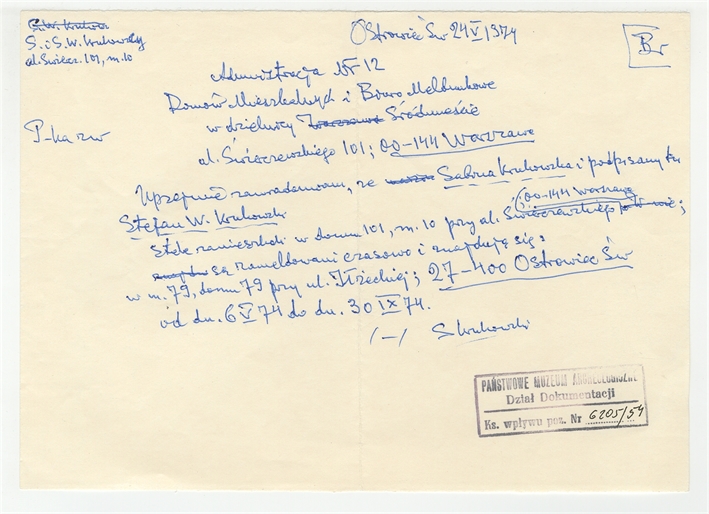 S. W. Krukow
S. i S. W. Krukowscy
al. Świercz. 101, m. 10
Ostrowiec Św 24 V 1974
Br
Administracja Nr 12
Domów Mieszkalnych i Biuro Meldunkowe
w dzielnicy Warszawa Śródmieście
al. Świerczewskiego 101; 00-144 Warszawa
P-ka zw
Uprzejmie zawiadamiam, że Sabina Krukowska i podpisany tu
Stefan W. Krukowski
00-144 Warszawa
stale zamieszkali w domu 101, m. 10 przy al. Świerczewskiego
są zameldowani czasowo i znajdują się:
w m. 79, domu 79 przy ul. Iłżeckiej; 27-400 Ostrowiec Św
od dn. 6 V 74 do dn. 30 IX 74.
/-/ S Krukowski
PAŃSTWOWE MUZEUM ARCHEOLOGICZNE
Dział Dokumentacji
Ks. wpływu poz. Nr 6205/54